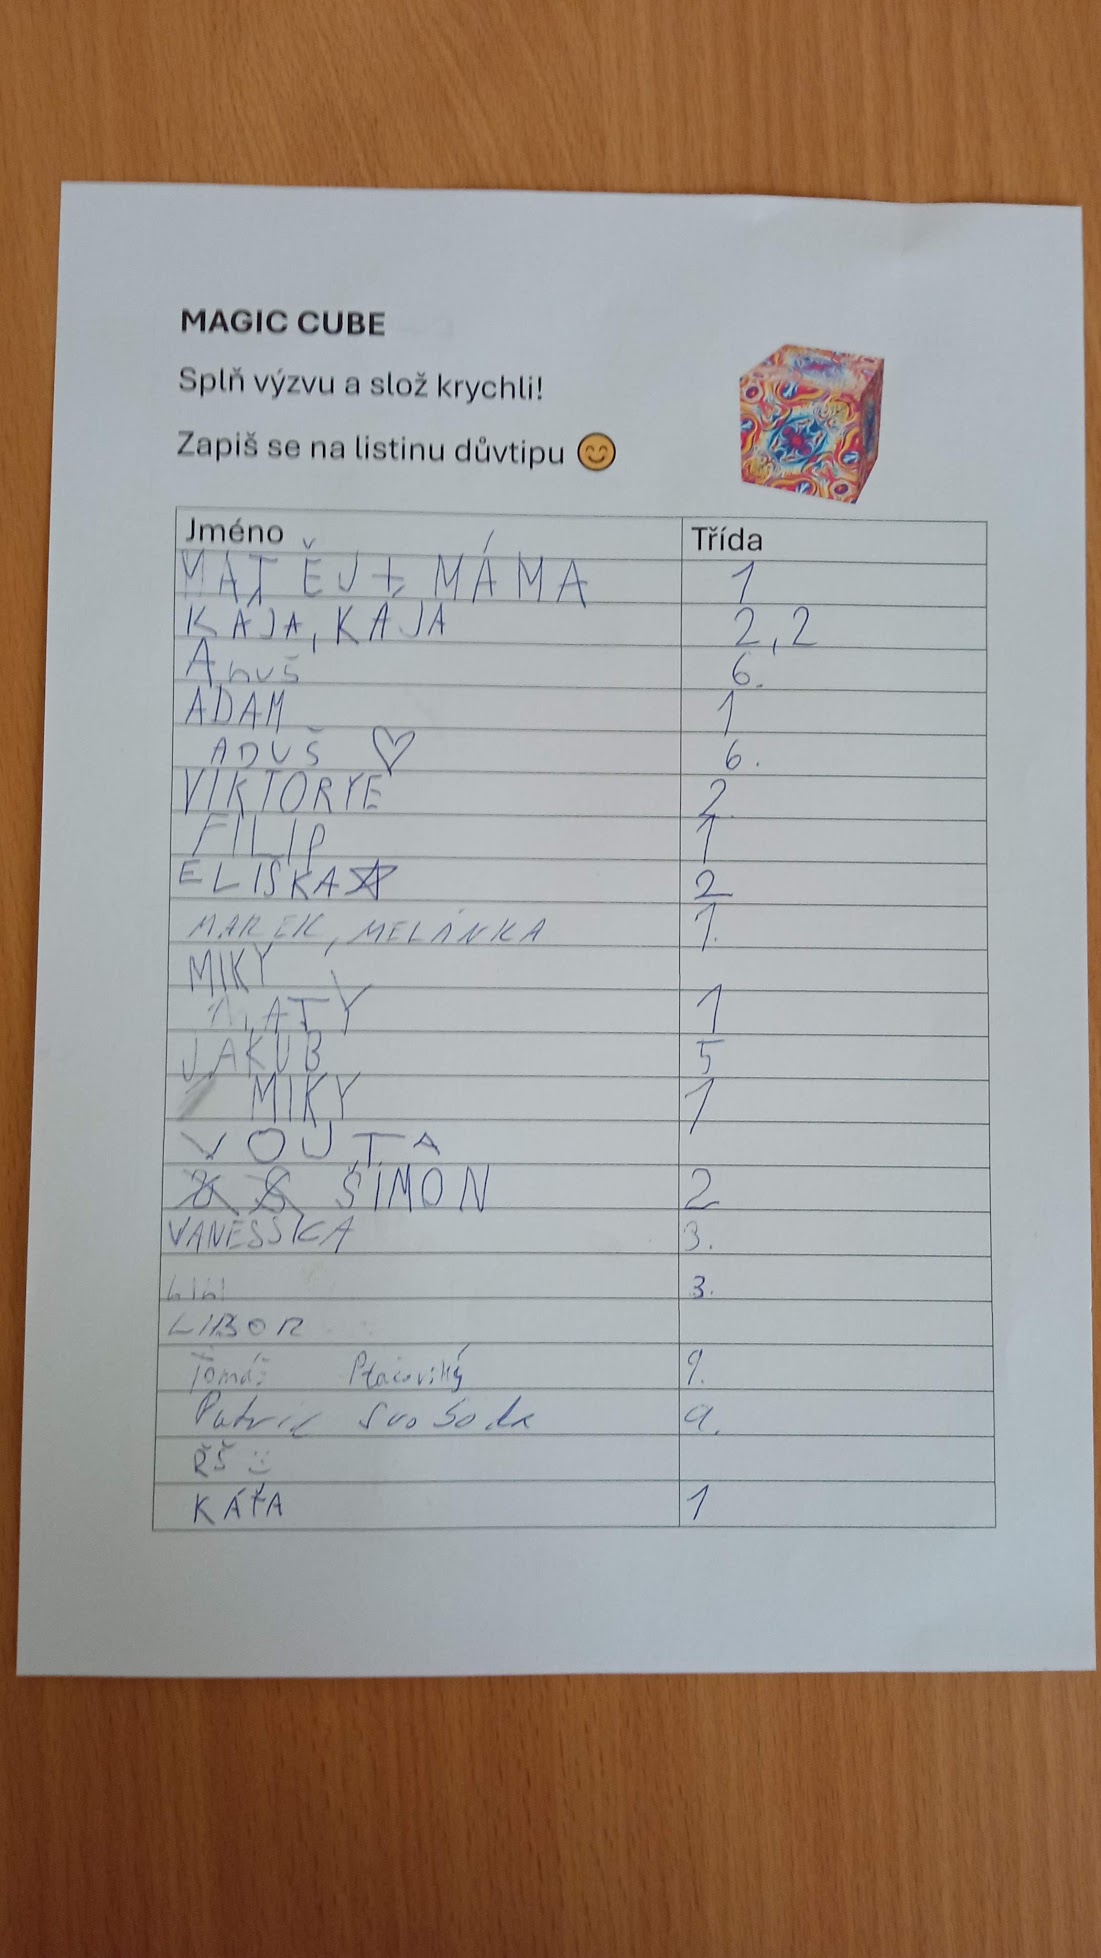 MAGIC CUBE
Splň výzvu a slož krychli!
Zapiš se na listinu důvtipu 😊
Jméno Třída
MATĚJ + MÁMA 1
KÁJA, KÁJA 2,2
Anuš 6.
ADAM 1
ADUŠ ♡ 6.
VIKTORYE 2
FILIP 1
ELIŠKA ☆ 2
MAREK, MELÁNKA 1.
MIKY
1
JAKUB 5
MIKY 1
VOJTA
ŠIMON 2
VANESSKA 3.
Lili 3.
LIBOR
Tomáš 9.
Patric Svoboda 9.
ŘŠ :)
KÁŤA 1